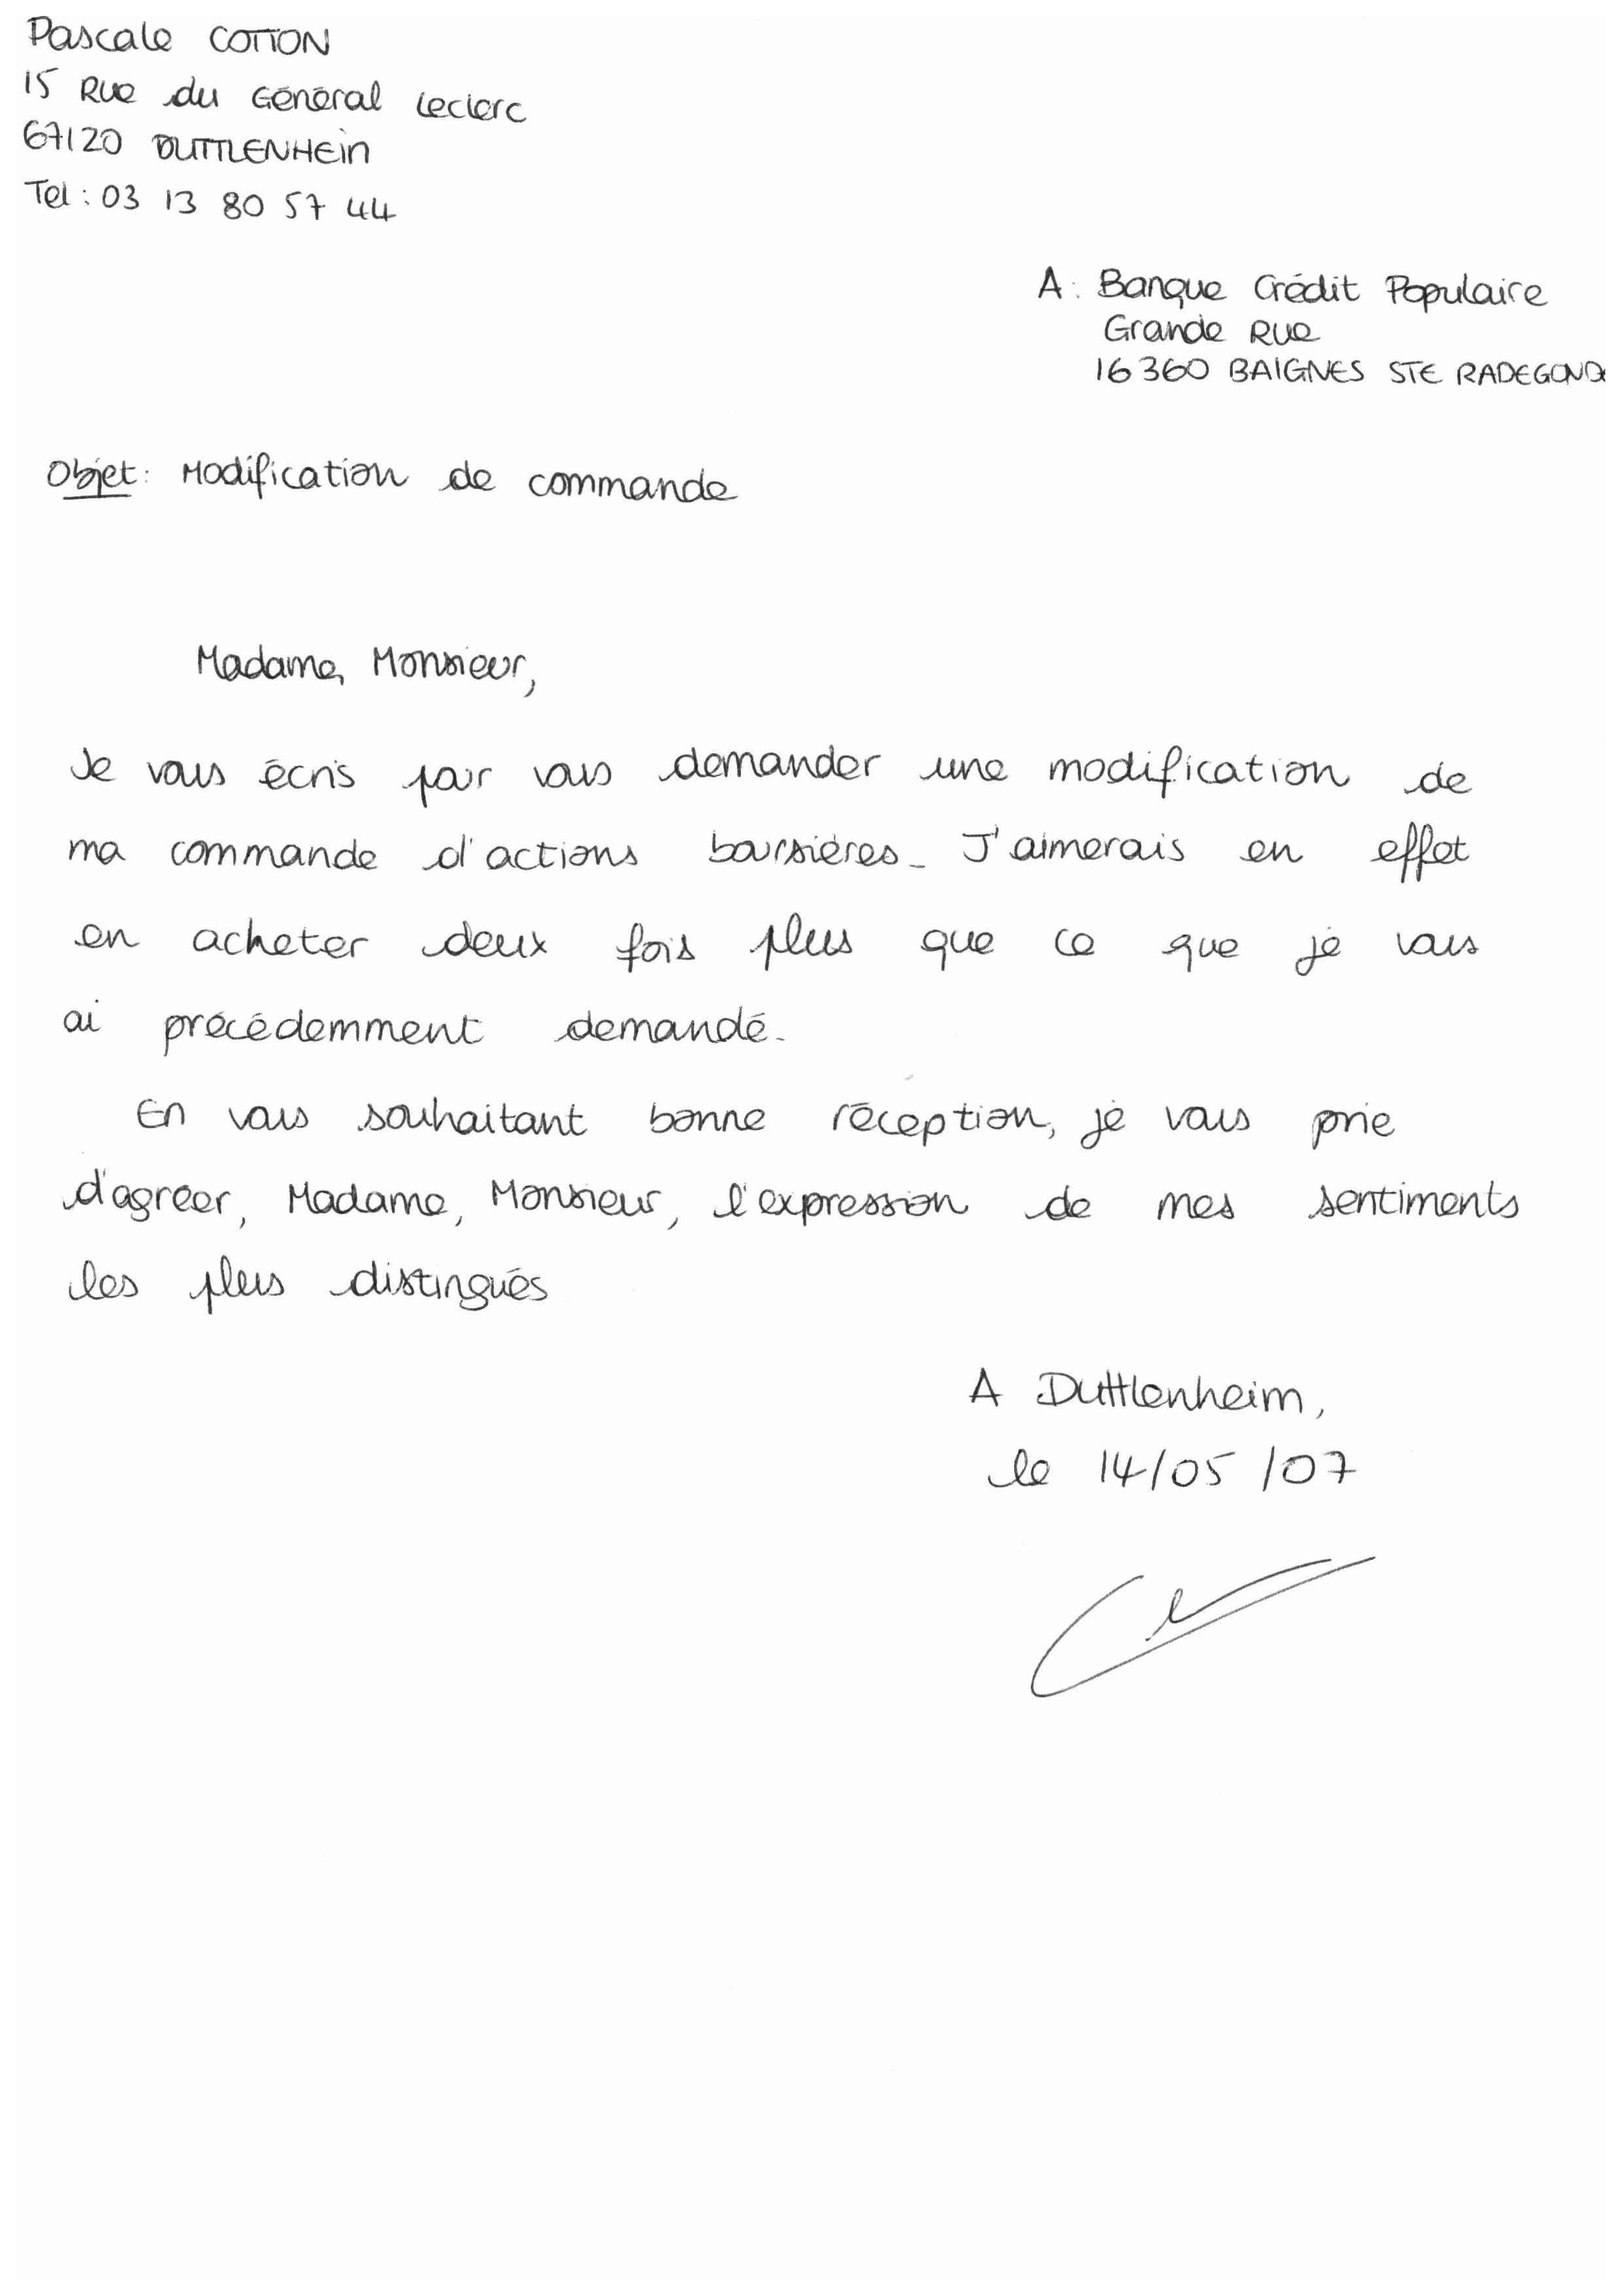 Pascale COTTON
15 Rue du Général Leclerc
67120 DUTTLENHEin
Tel : 03 13 80 57 44
A : Banque Crédit Populaire
Grande Rue
16360 BAIGNES STE RADEGOND
Objet : Modification de commande
Madame, Monsieur,
Je vous écris pour vous demander une modification de
ma commande d'actions boursières. J'aimerais en effet
en acheter deux fois plus que ce que je vous
ai précédemment demandé.
En vous souhaitant bonne réception, je vous prie
d'agréer, Madame, Monsieur, l'expression de mes sentiments
les plus distingués
A Duttlenheim,
le 14/05/07